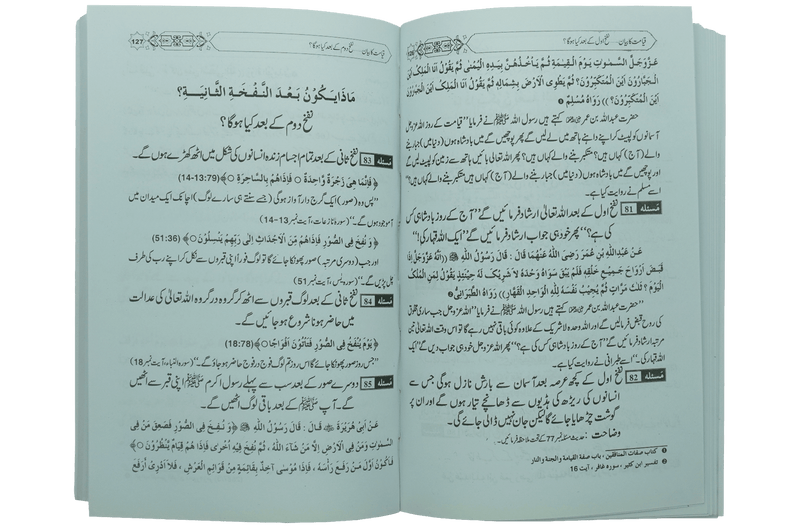 قیامت کا بیان ... نفخ اول کے بعد کیا ہوگا؟
126
عَزَّوَجَلَّ السَّمٰوٰتِ يَوْمَ الْقِيٰمَةِ ثُمَّ يَأْخُذُهُنَّ بِيَدِهِ الْيُمْنٰى ثُمَّ يَقُوْلُ اَنَا الْمَلِكُ اَيْنَ
الْجَبَّارُوْنَ اَيْنَ الْمُتَكَبِّرُوْنَ؟ ثُمَّ يَطْوِى الْاَرْضَ بِشِمَالِهٖ ثُمَّ يَقُوْلُ اَنَا الْمَلِكُ اَيْنَ الْجَبَّارُوْنَ
اَيْنَ الْمُتَكَبِّرُوْنَ؟)) رَوَاهُ مُسْلِمٌ ❶
حضرت عبداللہ بن عمر رضی اللہ عنہما کہتے ہیں رسول اللہ ﷺ نے فرمایا ”قیامت کے روز اللہ عزوجل
آسمانوں کو لپیٹ کر اپنے داہنے ہاتھ میں لے لیں گے پھر پوچھیں گے میں بادشاہ ہوں (دنیا میں) جبار بننے
والے (آج) کہاں ہیں؟ متکبر بننے والے (آج) کہاں ہیں؟ پھر اللہ تعالیٰ بائیں ہاتھ سے زمین کو لپیٹ لیں گے
اور پوچھیں گے میں بادشاہ ہوں (دنیا میں) جبار بننے والے (آج) کہاں ہیں؟ متکبر بننے والے کہاں ہیں؟“
اسے مسلم نے روایت کیا ہے۔
مسئلہ 81 نفخ اول کے بعد اللہ تعالیٰ ارشاد فرمائیں گے ”آج کے روز بادشاہی کس
کی ہے؟“ پھر خود ہی جواب ارشاد فرمائیں گے ”ایک اللہ قہار کی!“
عَنْ عَبْدِاللّٰهِ بْنِ عُمَرَ رَضِيَ اللّٰهُ عَنْهُمَا قَالَ : قَالَ رَسُوْلُ اللّٰهِ ﷺ ((اَنَّهُ عَزَّوَجَلَّ اِذَا
قَبَضَ اَرْوَاحَ جَمِيْعِ خَلْقِهٖ فَلَمْ يَبْقَ سِوَاهُ وَحْدَهُ لَا شَرِيْكَ لَهُ حِيْنَئِذٍ يَقُوْلُ لِمَنِ الْمُلْكُ
الْيَوْمَ؟ ثَلَاثَ مَرَّاتٍ ثُمَّ يُجِيْبُ نَفْسَهُ لِلّٰهِ الْوَاحِدِ الْقَهَّارِ)) رَوَاهُ الطَّبَرَانِيُّ ❷
حضرت عبداللہ بن عمر رضی اللہ عنہما کہتے ہیں رسول اللہ ﷺ نے فرمایا ”اللہ عزوجل جب ساری مخلوق
کی روح قبض فرمالیں گے اور اللہ وحدہ لاشریک کے علاوہ کوئی باقی نہیں رہے گا تو اس وقت اللہ تعالیٰ تین
مرتبہ ارشاد فرمائیں گے ”آج بادشاہی کس کی ہے؟“ پھر اللہ عزوجل خود ہی جواب دیں گے ”ایک
اللہ قہار کی۔“ اسے طبرانی نے روایت کیا ہے۔
مسئلہ 82 نفخ اول کے کچھ عرصہ بعد آسمان سے بارش نازل ہوگی جس سے
انسانوں کی ریڑھ کی ہڈیوں سے ڈھانچے تیار ہوں گے اور ان پر
گوشت چڑھایا جائے گا لیکن جان نہیں ڈالی جائے گی۔
وضاحت : حدیث مسئلہ نمبر 77 کے تحت ملاحظہ فرمائیں۔
❶ کتاب صفات المنافقین ، باب صفة القيامة والجنة والنار
❷ تفسیر ابن کثیر ، سورہ غافر ، آیت 16
قیامت کا بیان ... نفخ دوم کے بعد کیا ہوگا؟
127
مَاذَا يَكُوْنُ بَعْدَ النَّفْخَةِ الثَّانِيَةِ؟
نفخ دوم کے بعد کیا ہوگا؟
مسئلہ 83 نفخ ثانی کے بعد تمام اجسام زندہ انسانوں کی شکل میں اٹھ کھڑے ہوں گے۔
﴿فَاِنَّمَا هِيَ زَجْرَةٌ وَّاحِدَةٌ ○ فَاِذَاهُمْ بِالسَّاهِرَةِ ○﴾ (14-13:79)
”پس وہ (صور) ایک گرج دار آواز ہوگی (جسے سنتے ہی سارے لوگ) اچانک ایک میدان میں
آموجود ہوں گے۔“ (سورہ نازعات، آیت نمبر 13-14)
﴿وَ نُفِخَ فِى الصُّوْرِ فَاِذَاهُمْ مِّنَ الْاَجْدَاثِ اِلٰى رَبِّهِمْ يَنْسِلُوْنَ ○﴾ (51:36)
اور جب (دوسری مرتبہ) صور پھونکا جائے گا تو لوگ فوراً اپنی قبروں سے نکل کر اپنے رب کی طرف
چل پڑیں گے۔“ (سورہ یٰس، آیت نمبر 51)
مسئلہ 84 نفخ ثانی کے بعد لوگ قبروں سے اٹھ کر گروہ در گروہ اللہ تعالیٰ کی عدالت
میں حاضر ہونا شروع ہو جائیں گے۔
﴿يَوْمَ يُنْفَخُ فِى الصُّوْرِ فَتَاْتُوْنَ اَفْوَاجًا ○﴾ (18:78)
”جس روز صور پھونکا جائے گا اس روز تم لوگ فوج در فوج حاضر ہو جاؤ گے۔“ (سورہ النباء، آیت نمبر 18)
مسئلہ 85 دوسرے صور کے بعد سب سے پہلے رسول اکرم ﷺ اپنی قبر سے اٹھیں
گے۔ آپ ﷺ کے بعد باقی لوگ اٹھیں گے۔
عَنْ اَبِيْ هُرَيْرَةَ ﷺ قَالَ : قَالَ رَسُوْلُ اللّٰهِ ﷺ ((وَ نُفِخَ فِى الصُّوْرِ فَصَعِقَ مَنْ فِى
السَّمٰوٰتِ وَ مَنْ فِى الْاَرْضِ اِلَّا مَنْ شَآءَ اللّٰهُ ، ثُمَّ نُفِخَ فِيْهِ اُخْرٰى فَاِذَا هُمْ قِيَامٌ يَّنْظُرُوْنَ ○﴾
فَاَكُوْنُ اَوَّلَ مَنْ رَفَعَ رَاْسَهُ ، فَاِذَا مُوْسٰى آخِذٌ بِقَائِمَةٍ مِنْ قَوَائِمِ الْعَرْشِ ، فَلَا اَدْرِىْ اَرَفَعَ